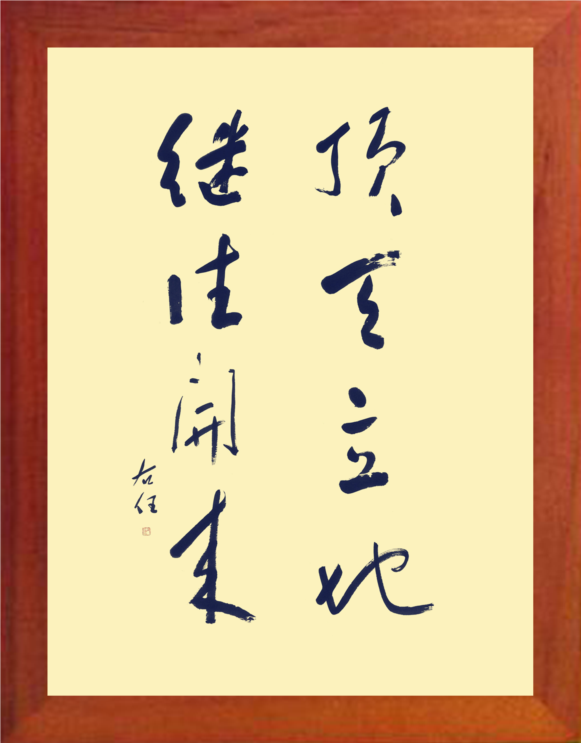 顶天立地
继往开来
右任